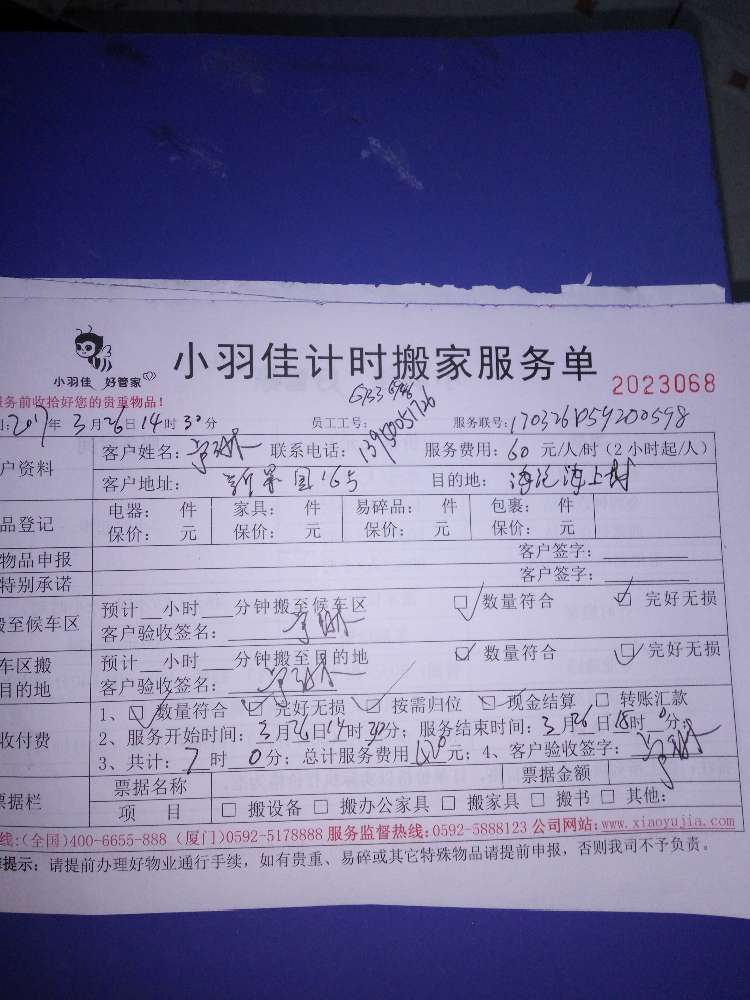 小羽佳 好管家
小羽佳计时搬家服务单
2023068
务前收拾好您的贵重物品！
2017年3月26日14时30分 员工工号： 服务联号：
户资料 客户姓名： 联系电话：13950051726 服务费用：60元/人/时（2小时起/人）
客户地址： 目的地：海沧海上
品登记 电器： 件 家具： 件 易碎品： 件 包裹： 件
保价： 元 保价： 元 保价： 元 保价： 元
物品申报 客户签字：
特别承诺 客户签字：
至候车区 预计 小时 分钟搬至候车区 ☑数量符合 ☑完好无损
客户验收签名：
车区搬 预计 小时 分钟搬至目的地 ☑数量符合 ☑完好无损
目的地 客户验收签名：
收付费 1、☑数量符合 ☑完好无损 ☑按需归位 ☑现金结算 □转账汇款
2、服务开始时间：3月26日14时30分；服务结束时间：3月26日18时0分；
3、共计：7时0分；总计服务费用420元；4、客户验收签字：
据栏 票据名称 票据金额
项 目 □搬设备 □搬办公家具 □搬家具 □搬书 □其他：
线：（全国）400-6655-888（厦门）0592-5178888 服务监督热线：0592-5888123 公司网站：www.xiaoyujia.com
提示：请提前办理好物业通行手续，如有贵重、易碎或其它特殊物品请提前申报，否则我司不予负责。